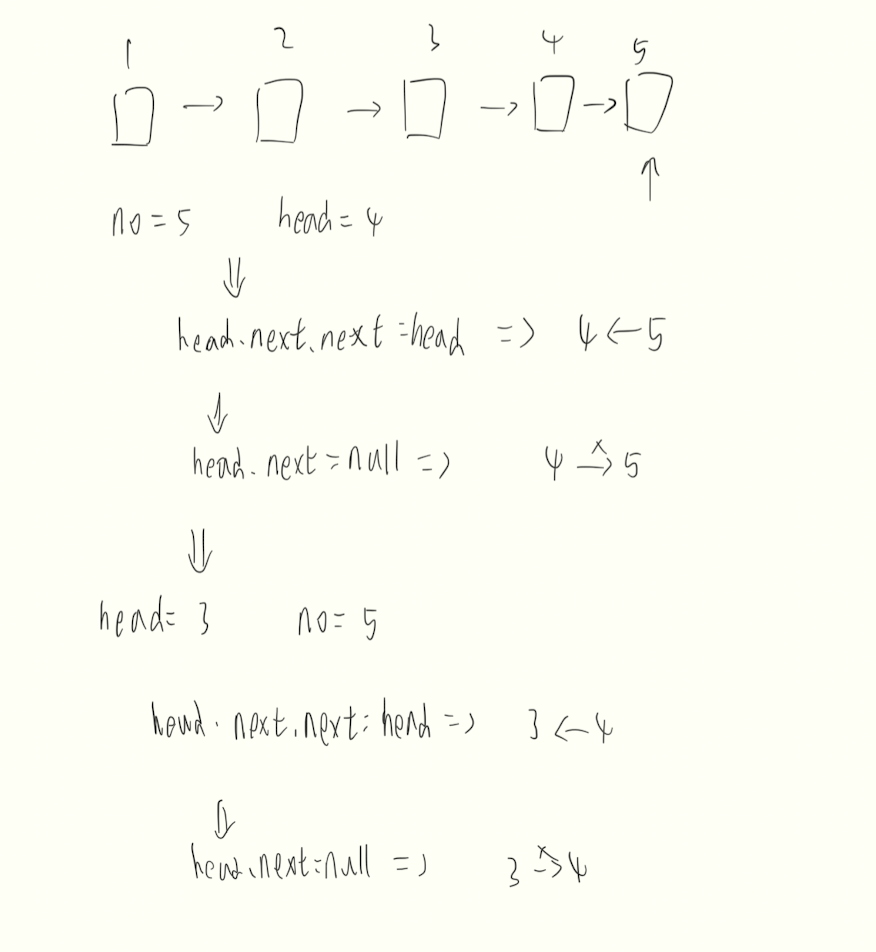 1 2 3 4 5
→ → → →
↑
no = 5 head = 4
⇓
head.next.next = head => 4 ← 5
⇓
head.next = null => 4 →x 5
⇓
head = 3 no = 5
head.next.next = head => 3 ← 4
⇓
head.next = null => 3 →x 4